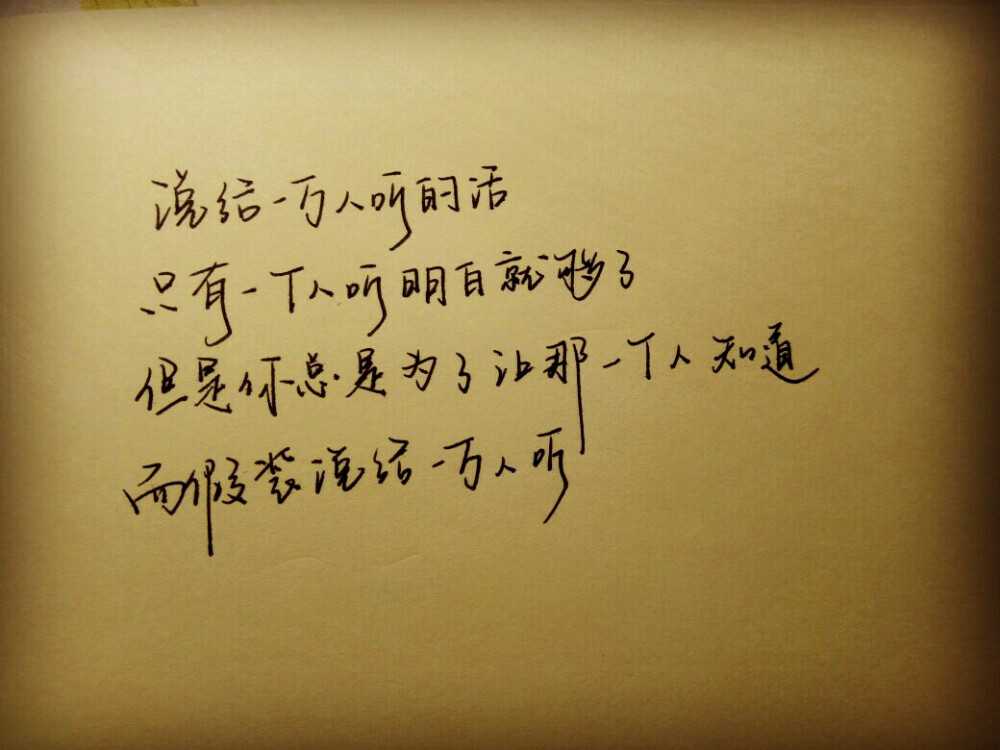 说给一万人听的话
只有一个人听明白就够了
但是你总是为了让那一个人知道
而假装说给一万人听